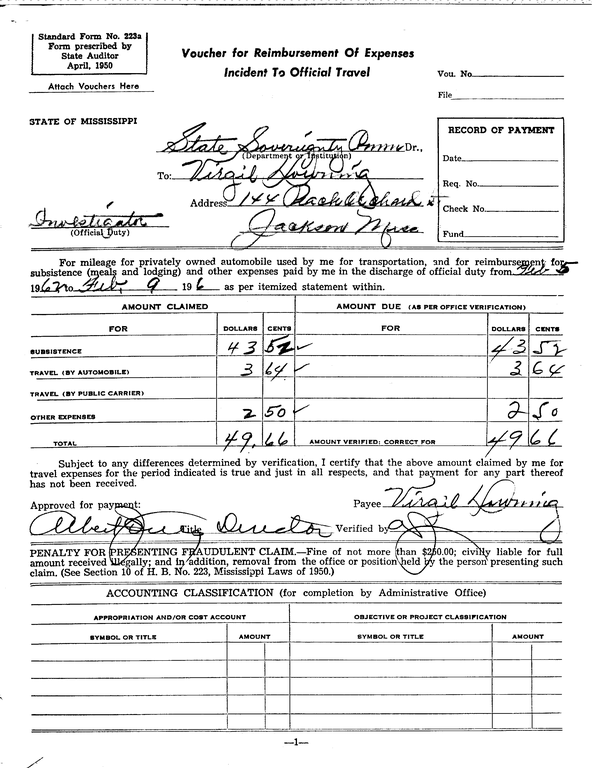 Standard Form No. 223a
Form prescribed by
State Auditor
April, 1950
Attach Vouchers Here
Voucher for Reimbursement Of Expenses
Incident To Official Travel
Vou. No.
File
STATE OF MISSISSIPPI
State Sovereignty Comm Dr.,
(Department or Institution)
To: Virgil Downing
Address 144
Jackson Miss
Investigator
(Official Duty)
RECORD OF PAYMENT
Date
Req. No.
Check No.
Fund
For mileage for privately owned automobile used by me for transportation, and for reimbursement for
subsistence (meals and lodging) and other expenses paid by me in the discharge of official duty from Feb 5
1962 to Feb. 9 196 as per itemized statement within.
AMOUNT CLAIMED AMOUNT DUE (AS PER OFFICE VERIFICATION)
FOR DOLLARS CENTS FOR DOLLARS CENTS
SUBSISTENCE 43 52 ✓ 43 52
TRAVEL (BY AUTOMOBILE) 3 64 ✓ 3 64
TRAVEL (BY PUBLIC CARRIER)
OTHER EXPENSES 2 50 ✓ 2 50
TOTAL 49.66 AMOUNT VERIFIED: CORRECT FOR 49 66
Subject to any differences determined by verification, I certify that the above amount claimed by me for
travel expenses for the period indicated is true and just in all respects, and that payment for any part thereof
has not been received.
Approved for payment: Payee Virgil Downing
Albert Jones Title Director Verified by
PENALTY FOR PRESENTING FRAUDULENT CLAIM.—Fine of not more than $250.00; civilly liable for full
amount received illegally; and in addition, removal from the office or position held by the person presenting such
claim. (See Section 10 of H. B. No. 223, Mississippi Laws of 1950.)
ACCOUNTING CLASSIFICATION (for completion by Administrative Office)
APPROPRIATION AND/OR COST ACCOUNT OBJECTIVE OR PROJECT CLASSIFICATION
SYMBOL OR TITLE AMOUNT SYMBOL OR TITLE AMOUNT
—1—